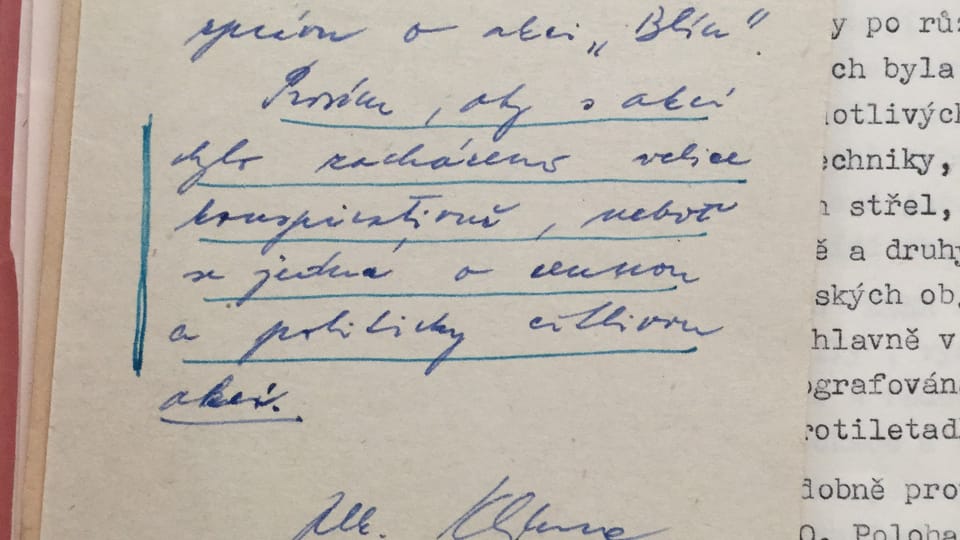 správu o akci „Blín".
Prosím, aby s akcí
bylo zacházeno velice
konspirativně, neboť
se jedná o cennou
a politicky citlivou
akci.
y po růz
ch byla
otlivých
echniky,
střel,
ě a druhy
ských ob
hlavně v
ografována
rotiletad
dobně pro
O. Poloha